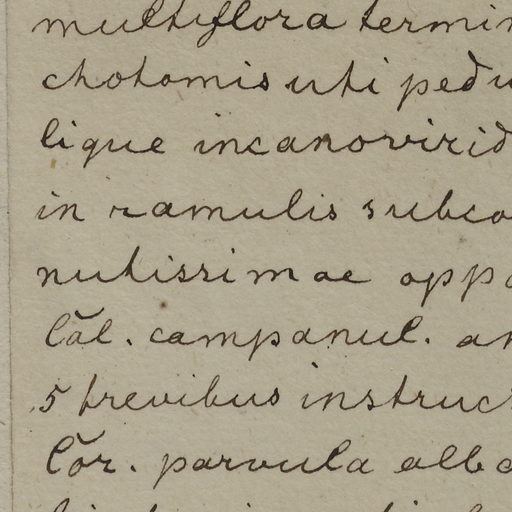 multiflora termin
chotomis uti pedu
lique incanovirid
in ramulis subco
nutissimae oppo
Căl. campanul. an
5 brevibus instruct
Cŏr. parvula alba